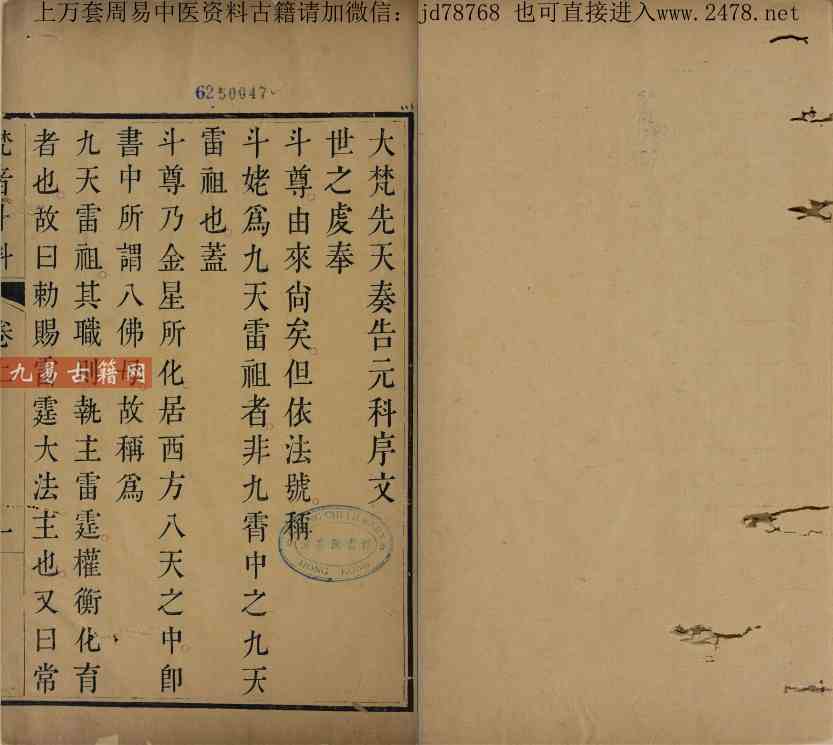 上万套周易中医资料古籍请加微信：jd78768 也可直接进入www.2478.net
6250047
大梵先天奏告元科序文
世之虔奉
斗尊由來尙矣但依法號稱
斗姥爲九天雷祖者非九霄中之九天
雷祖也蓋
斗尊乃金星所化居西方八天之中卽
書中所謂八佛母故稱爲
九天雷祖其職則執主雷霆權衡化育
者也故曰勅賜雷霆大法主也又曰常
梵音斗科
卷
一
九易古籍网
HONG KONG